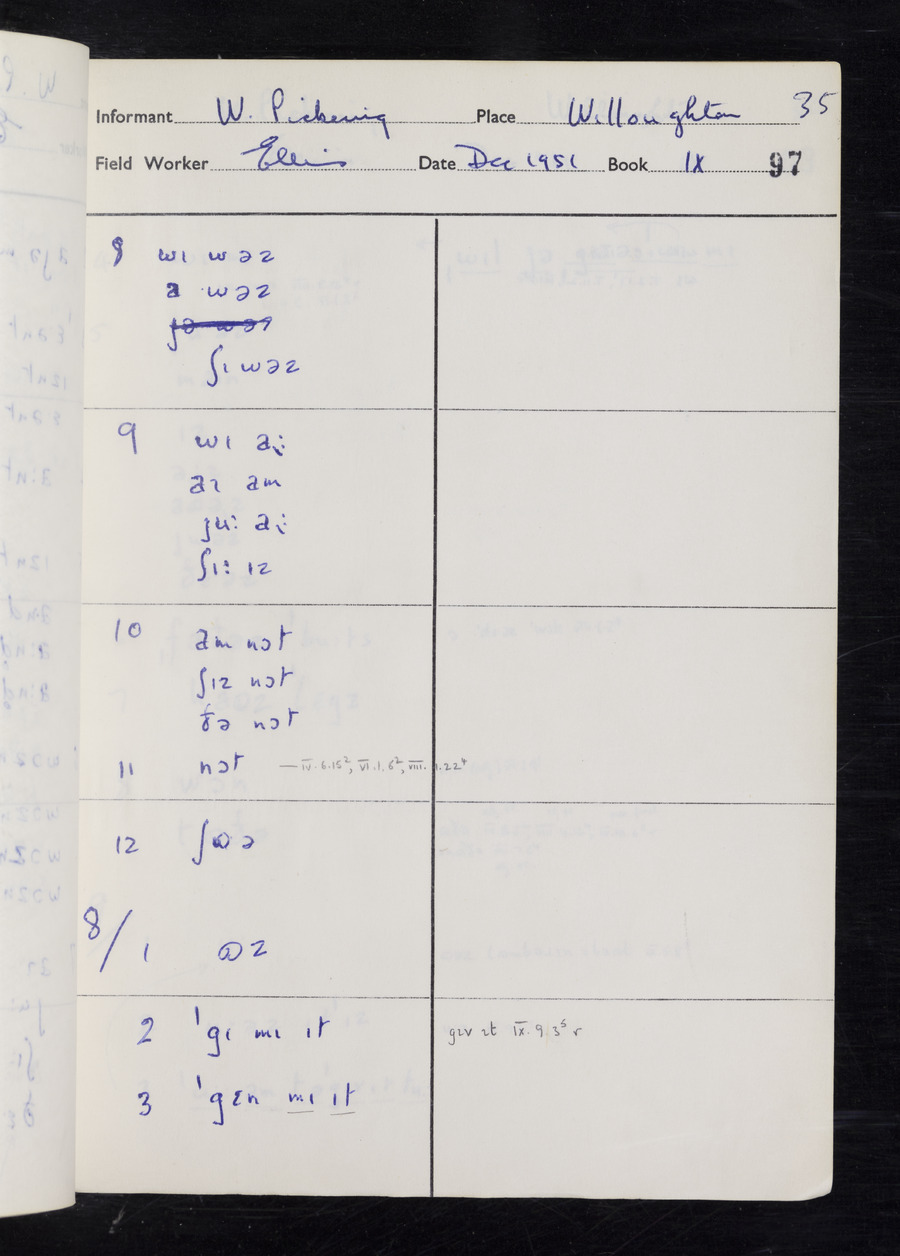 35
Informant W. Pickering Place Willoughton
Field Worker Ellis Date Dec 1951 Book IX 97
8 wɪ wəz
a wəz
jə wəz
ʃɪ wəz
9 wɪ a:
aɪ am
ju: a:
ʃɪ: ɪz
10 am nɔt
ʃɪz nɔt
ðə nɔt
11 nɔt — IV.6.15², VI.1.6², VIII.1.22⁴
12 ʃɷə
8/1 ɷz
2 ˈgɪ mɪ ɪt gɪv ɪt IX.9.3⁵ r
3 ˈgɛn mɪ ɪt